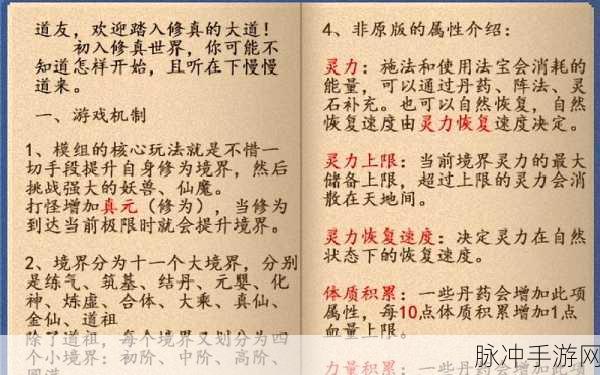 道友，欢迎踏入修真的大道！
初入修真世界，你可能不
知道怎样开始，且听在下慢慢
道来。
一、游戏机制
1、模组的核心玩法就是不惜一
切手段提升自身修为境界，然后
挑战强大的妖兽、仙魔。
打怪增加真元（修为），当修为
到达当前极限时就会提升境界。
2、境界分为十一个大境界，分别
是练气、筑基、结丹、元婴、化
神、炼虚、合体、大乘、真仙、
金仙、道祖
除了道祖，每个境界又划分为四
个小境界：初阶、中阶、高阶、
圆满
4、非原版的属性介绍：
灵力：施法和使用法宝会消耗的
能量，可以通过丹药、阵法、灵
石补充。也可以自然恢复，自然
恢复速度由灵力恢复速度决定。
灵力上限：当前境界灵力的最大
储备上限，超过上限的灵力会消
散在天地间。
灵力恢复速度：决定灵力在自然
状态下的恢复速度。
体质积累：一些丹药会增加此项
属性，每10点体质积累增加1点
血量上限。
力量积累：一些丹药会增加此项
脉冲手游网